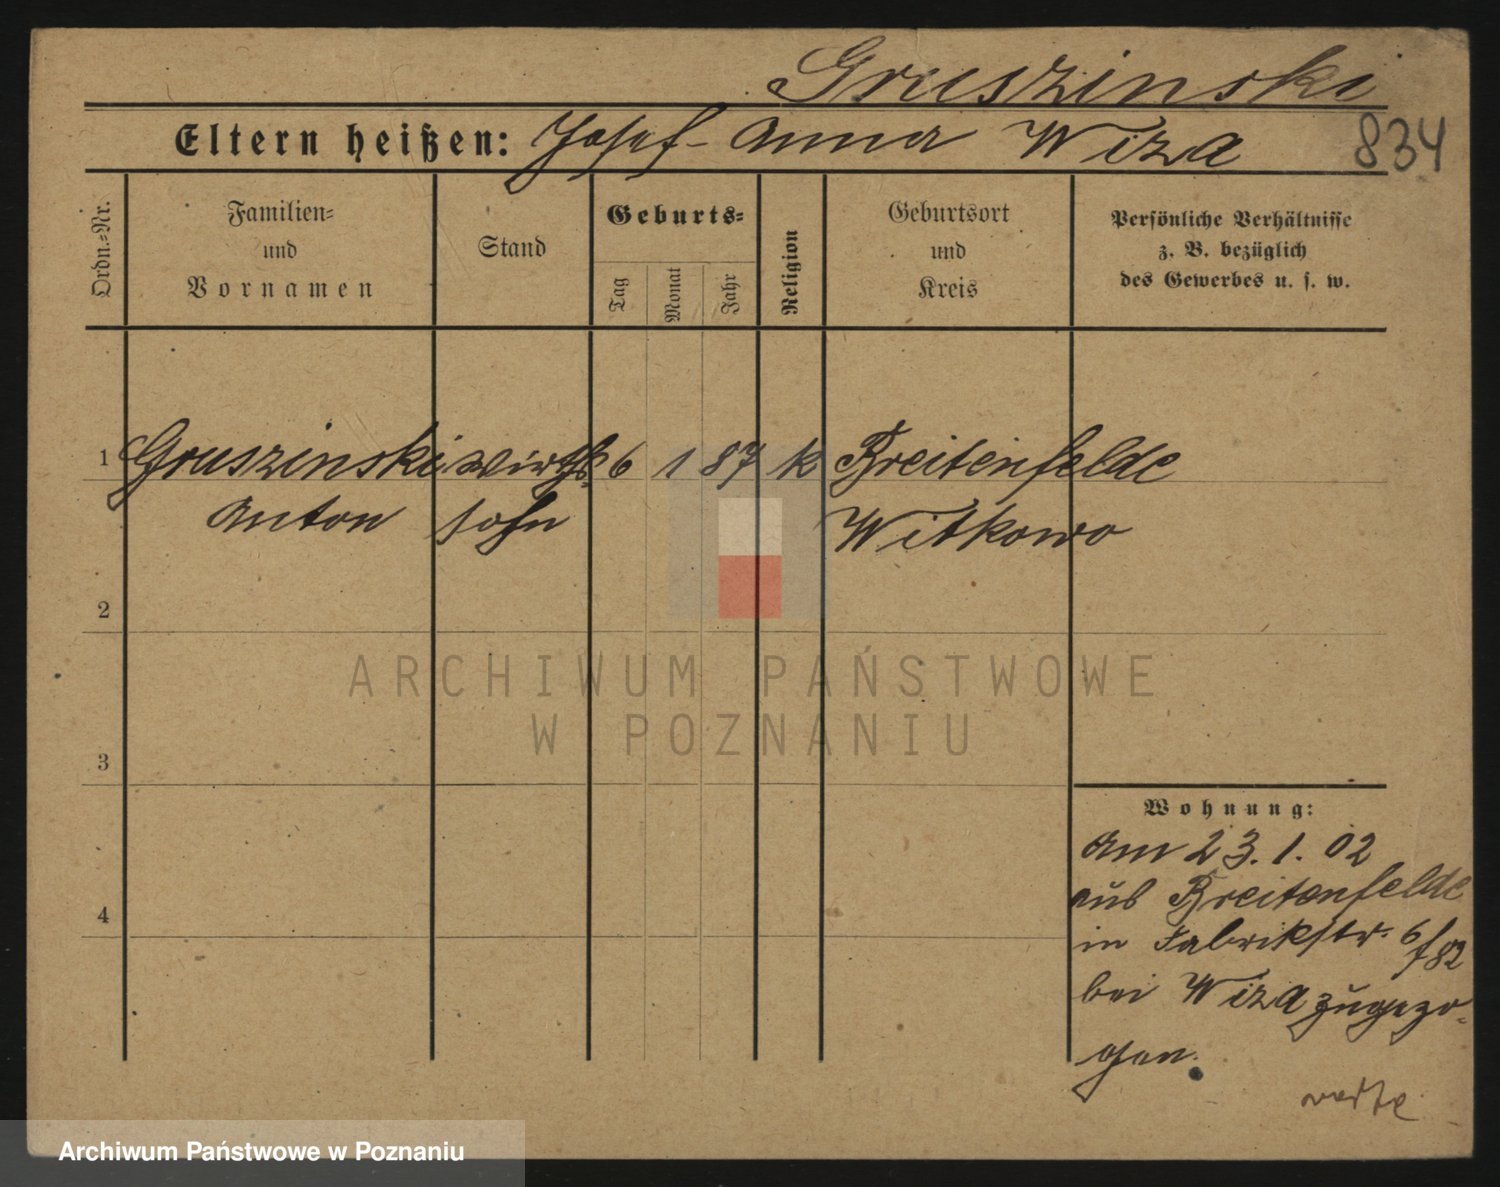 Gruszinski
Eltern heißen: Josef - Anna Wiza 834
Ordn.=Nr.
Familien=
und
Vornamen
Stand
Geburts=
Tag
Monat
Jahr
Religion
Geburtsort
und
Kreis
Persönliche Verhältnisse
z. B. bezüglich
des Gewerbes u. s. w.
1 Gruszinski Wirths 6 1 87 k Breitenfelde
Anton sohn Witkowo
2
ARCHIWUM PAŃSTWOWE
W POZNANIU
3
Wohnung:
Am 23.1.02
aus Breitenfelde
4
in Fabrikstr. 6/82
bei Wiza zugezo-
gen.
Archiwum Państwowe w Poznaniu